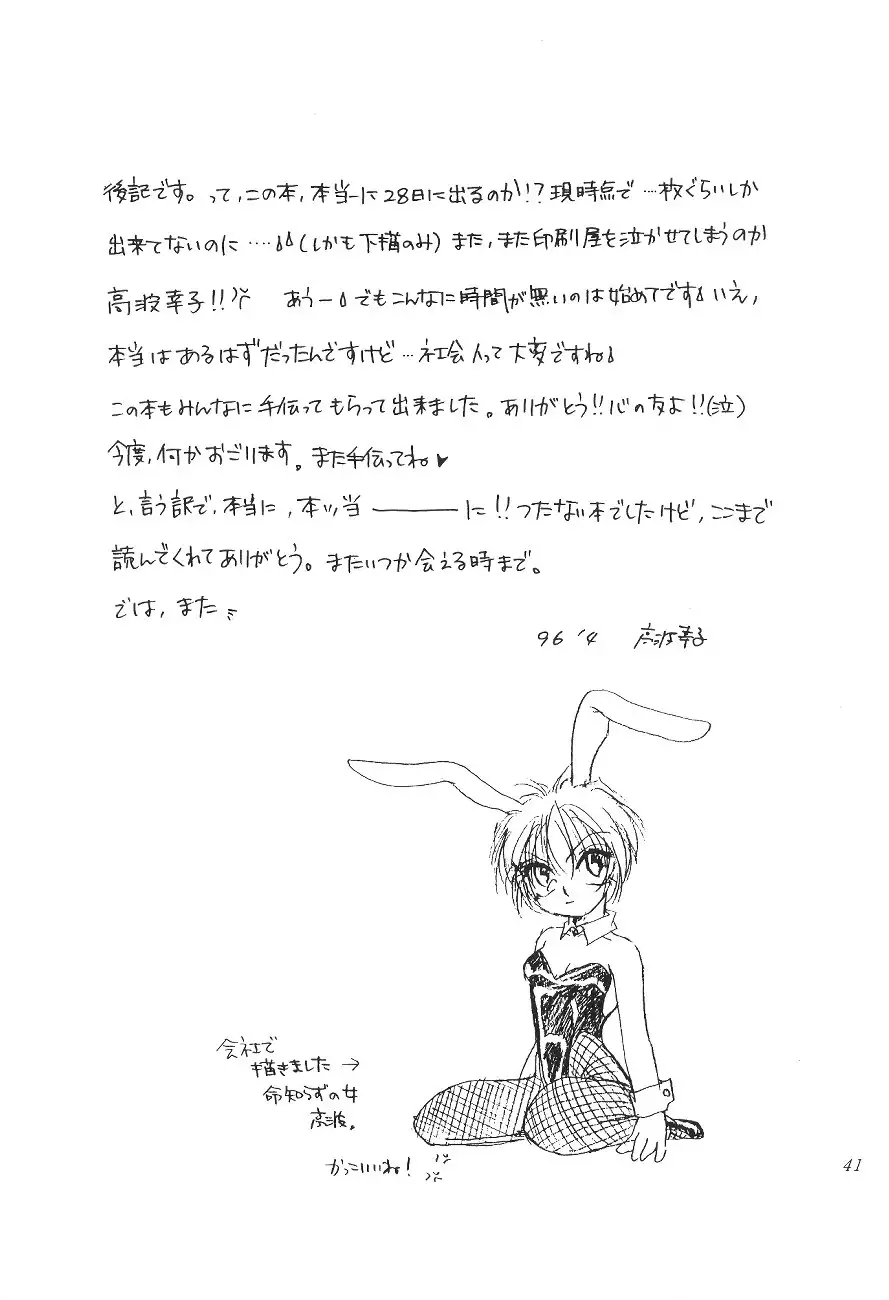 後記です。って,この本,本当ーに28日に出るのか!?現時点で…枚ぐらいしか
出来てないのに‥‥(しかも下描のみ)また,また印刷屋を泣かせてしまうのか
高波幸子!! あうーでもこんなに時間が無いのは始めてですいえ,
本当はあるはずだったんですけど…社会人って大変ですね
この本もみんなに手伝ってもらって出来ました。ありがとう!!心の友よ!!(泣)
今度,何かおごります。また手伝ってね♥
と,言う訳で,本当に,本ッ当――――に!!つたない本でしたけど,ここまで
読んでくれてありがとう。またいつか会える時まで。
では,また
96 '4 高波幸子
会社で
描きました→
命知らずの女
高波。
かっこいいね!
41